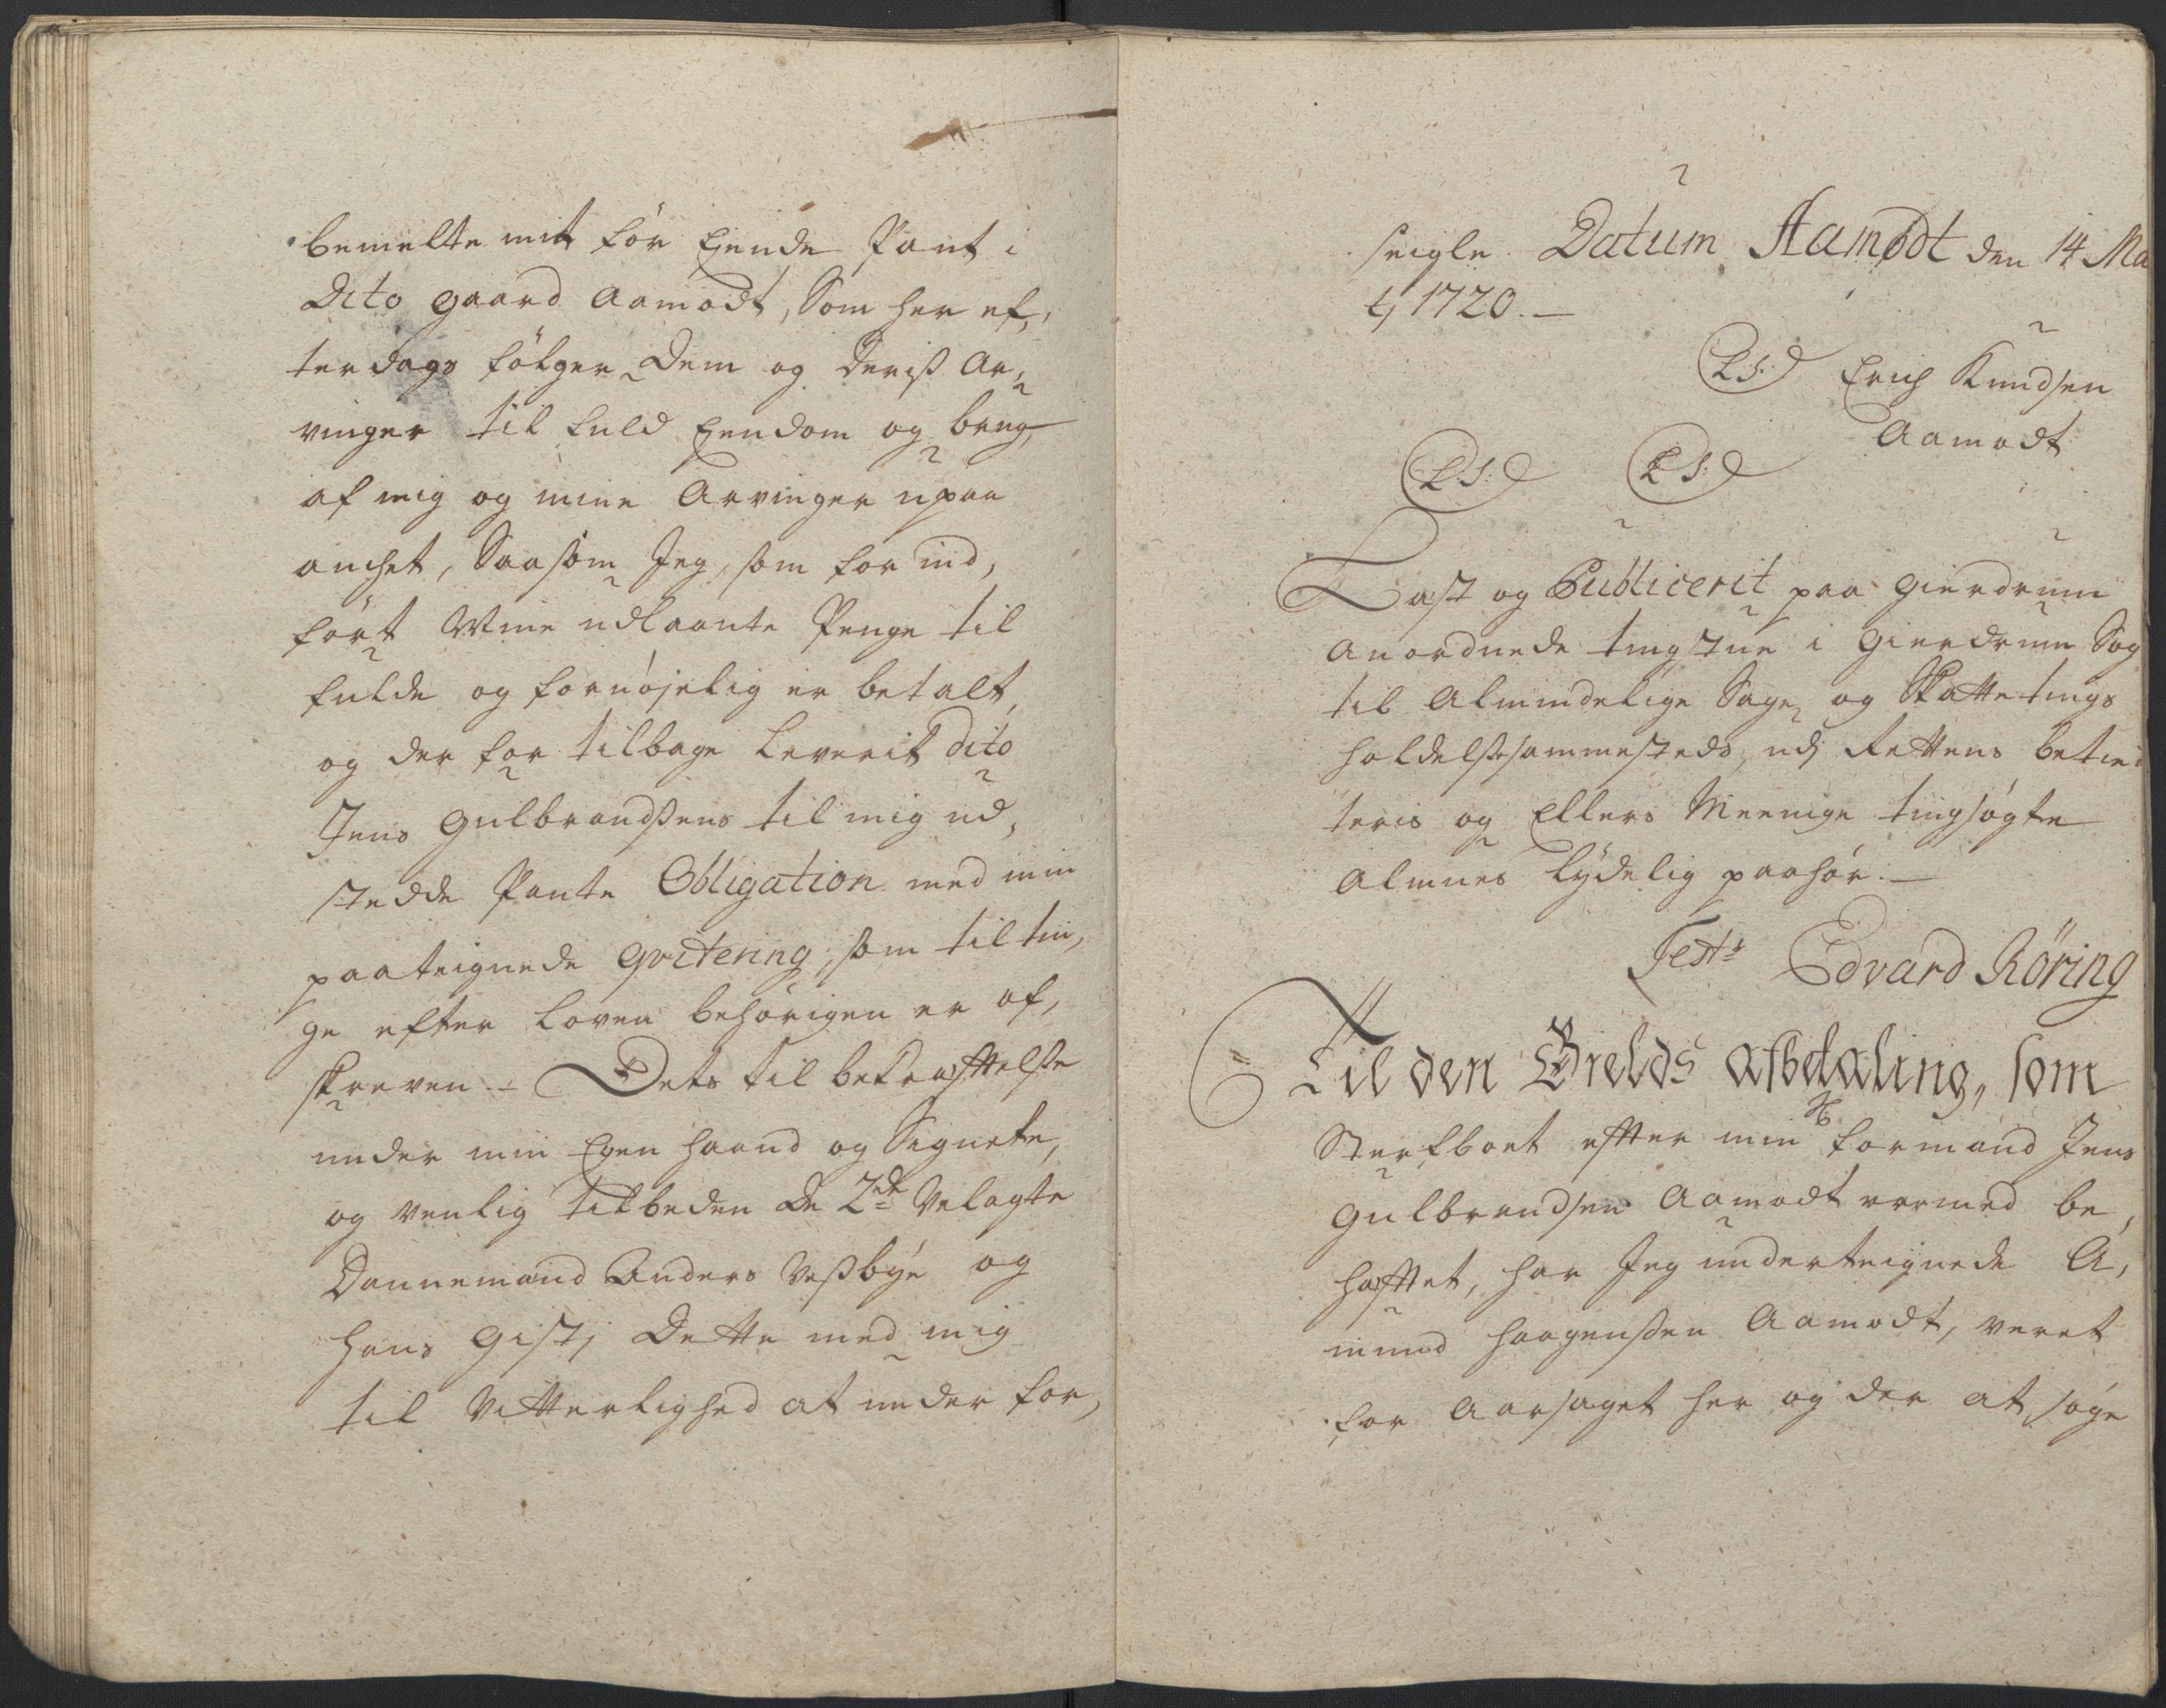 bemelte mit för Eyende Pant i
Dito gaard Aamodt, Som her ef,
ter dags fölger Dem og Deriß Ar,
vinger til fuld Eyendom og brug,
af mig og mine Arvinger upaa
anchet, Saasom Jeg, som for ind,
fört Mine udlaante Penge til
fulde og fornöjelig er betalt,
og der for tilbage leverit dito
Jens Gulbrandßens til mig ud,
stedde Pante Obligation med min
paateignede Qvitering, som til tin,
ge efter loven behörigen er af,
skreven. – Dets til bekrafftelße
under min Egen haand og Signete,
og venlig tilbeden De 2de Velagte
Dannemænd Anders Veßbye og
hans Gisti Dette med mig
til Vitterlighed at under for,
seigle. Datum Aamodt den 14 Ma
tj 1720. –
L.S. Erich Knudsen
Aamodt
L.S. L.S.
Læst og Publicerit paa Gierdrum
anordnede tingstue i Gierdrum Sog
til Almindelige Sage og Skattetings
holdelße sammesteds, udj Rettens betien
teris og Ellers Meenige tingsögte
Almues lydelig paahör. –
Test: Edvard Röring
Til den Gields afbetaling, som
Sterfboet effter min Sl. formand Jens
Gulbrandsen Aamodt var med be,
hafftet, har Jeg underteignede A,
mund Haagenßen Aamodt, veret
for Aarsaget her og der at söge